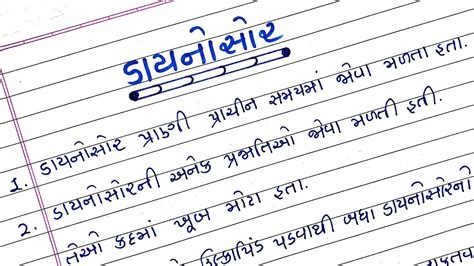 ડાયનોસોર
1. ડાયનોસોર પ્રાણી પ્રાચીન સમયમાં જોવા મળતા હતા.
2. ડાયનોસોરની અનેક પ્રજાતિઓ જોવા મળતી હતી.
તેઓ કદમાં ખૂબ મોટા હતા.
ઉલ્કાપિંડ પડવાથી બધા ડાયનોસોરનો